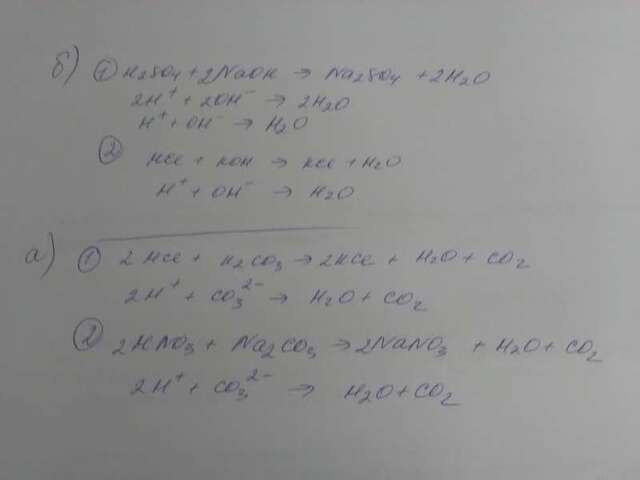 б) ① H₂SO₄ + 2NaOH → Na₂SO₄ + 2H₂O
2H⁺ + 2OH⁻ → 2H₂O
H⁺ + OH⁻ → H₂O
② HCl + KOH → KCl + H₂O
H⁺ + OH⁻ → H₂O
а) ① 2HCl + K₂CO₃ → 2KCl + H₂O + CO₂
2H⁺ + CO₃²⁻ → H₂O + CO₂
② 2HNO₃ + Na₂CO₃ → 2NaNO₃ + H₂O + CO₂
2H⁺ + CO₃²⁻ → H₂O + CO₂